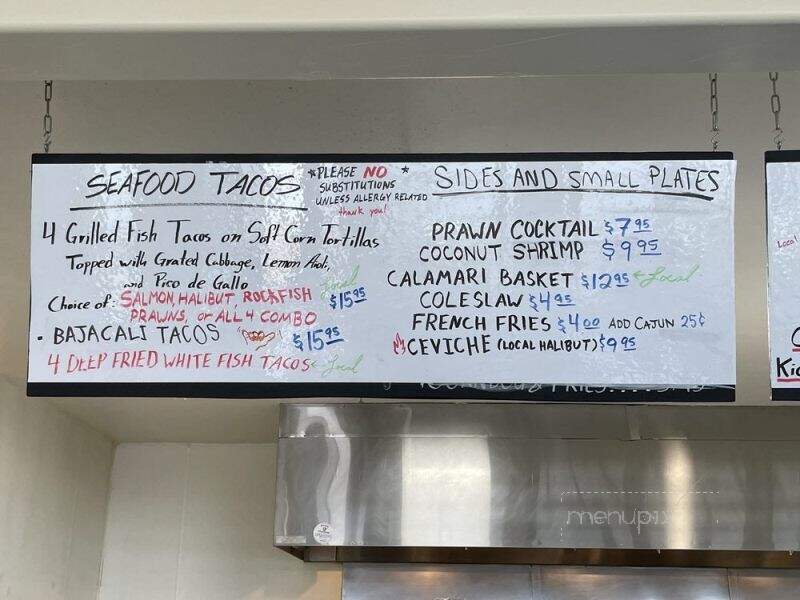 SEAFOOD TACOS
*PLEASE NO *
SUBSTITUTIONS
UNLESS ALLERGY RELATED
thank you!
4 Grilled Fish Tacos on Soft Corn Tortillas
Topped with Grated Cabbage, Lemon Aioli,
and Pico de Gallo
Local
Choice of: SALMON, HALIBUT, ROCKFISH $15.95
PRAWNS, or ALL 4 COMBO
• BAJACALI TACOS $15.95
4 DEEP FRIED WHITE FISH TACOS Local
SIDES AND SMALL PLATES
PRAWN COCKTAIL $7.95
COCONUT SHRIMP $9.95
CALAMARI BASKET $12.95 Local
COLESLAW $4.95
FRENCH FRIES $4.00 ADD CAJUN 25¢
CEVICHE (LOCAL HALIBUT) $9.95
Local
Kid
menupix